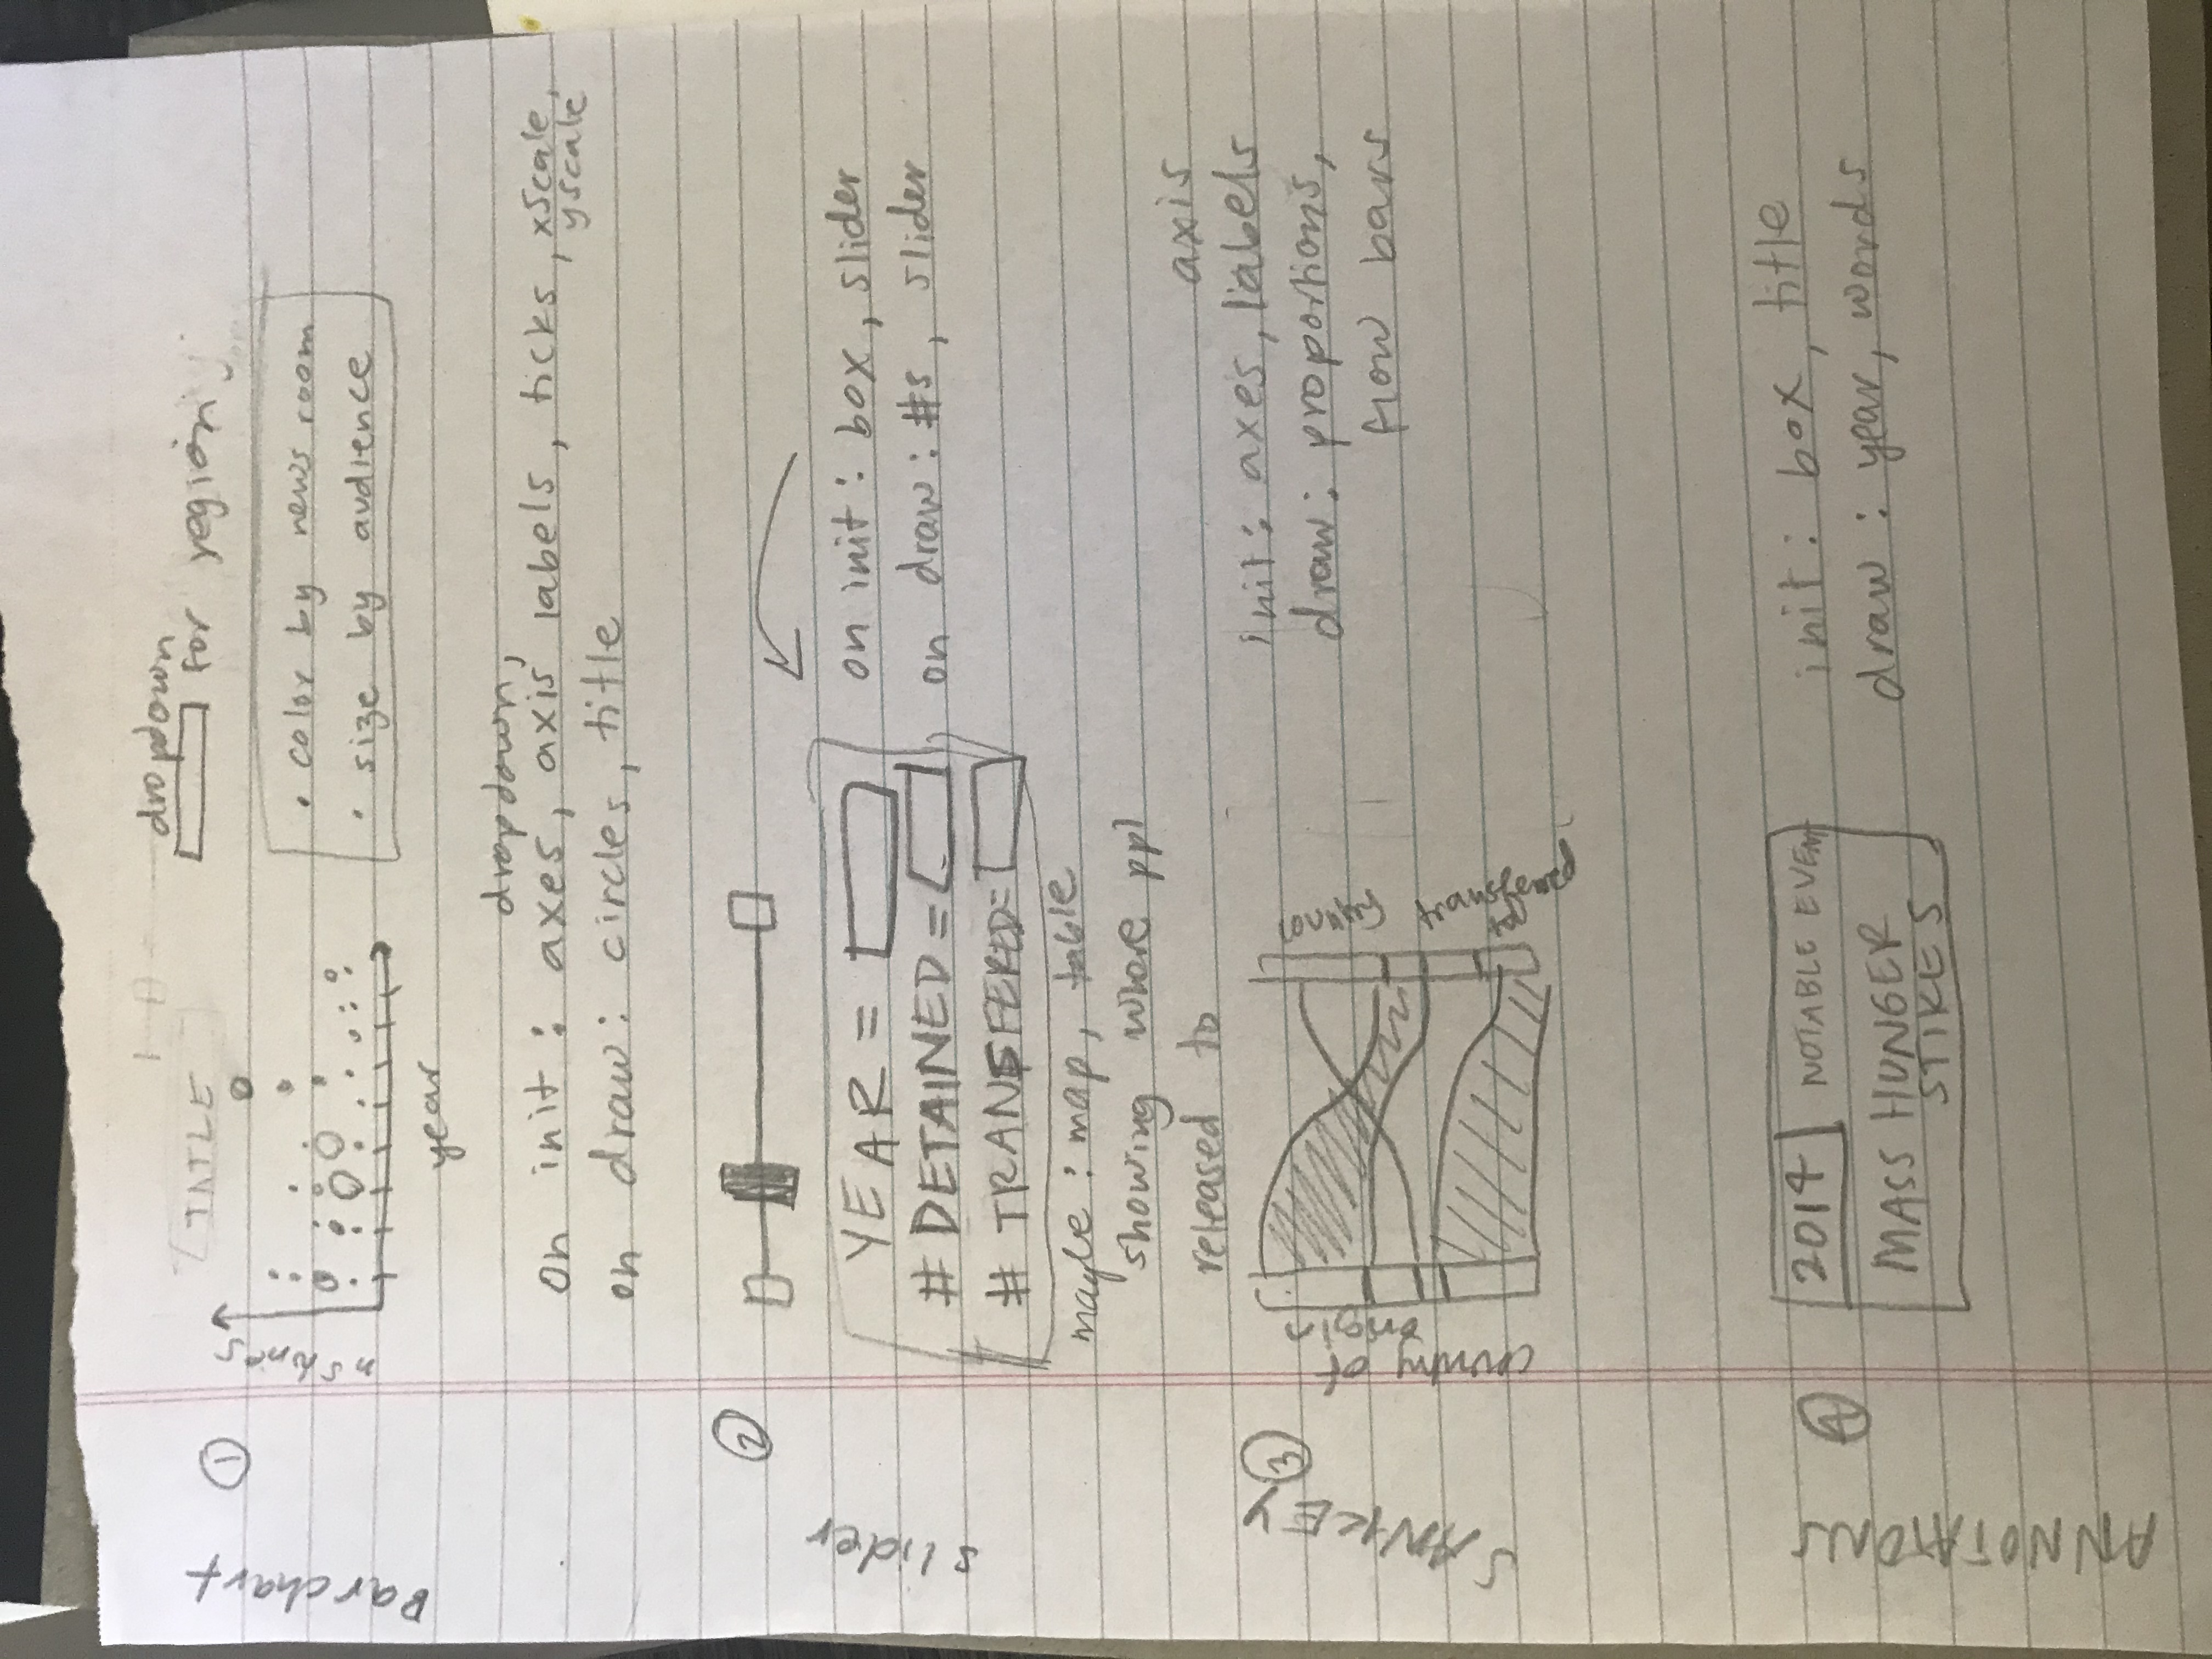 Barchart
1
TATLE
dropdown
for region
n Stories
year
• color by news room
• size by audience
dropdown,
on init : axes, axis labels, ticks, xScale,
yscale
on draw: circles, title
2
slider
YEAR =
# DETAINED =
# TRANSFERED=
on init : box, slider
on draw : #s, slider
maybe : map, table
showing where ppl
released to
SANKEY
3
country of
origin
country
transferred
to
axis
init : axes, labels
draw : proportions,
flow bars
ANNOTATONS
4
2014 NOTABLE EVENT
MASS HUNGER
STIKES
init : box, title
draw : year, words